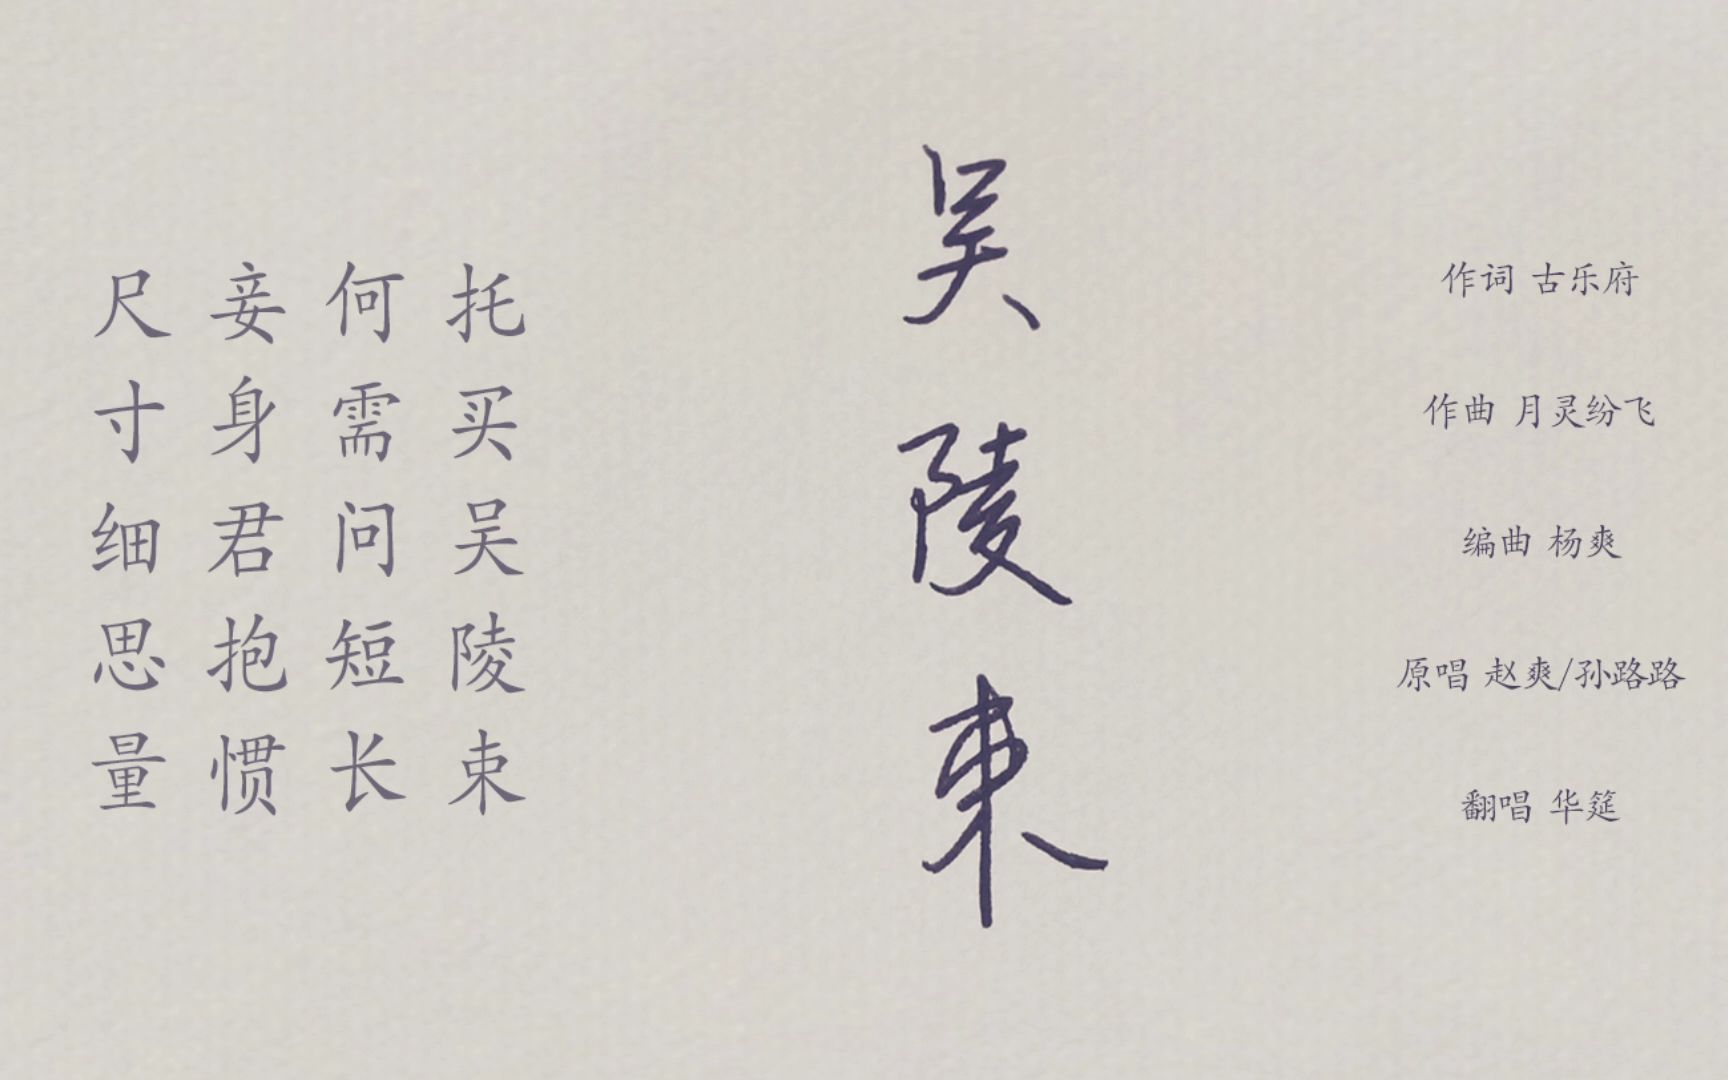 吴陵束
托买吴陵束
何需问短长
妾身君抱惯
尺寸细思量
作词 古乐府
作曲 月灵纷飞
编曲 杨爽
原唱 赵爽/孙路路
翻唱 华筵